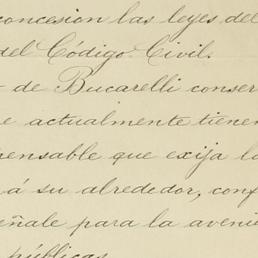 concesion las leyes del
del Código Civil.
- de Bucarelli conser
e actualmente tienen
pensable que exija la
á su alrededor, conf
eñale para la aveni
públicas